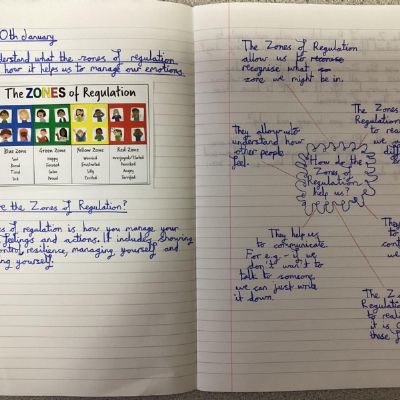 0th January
derstand what the zones of regulation
how it helps us to manage our emotions.
The ZONES of Regulation
Blue Zone Green Zone Yellow Zone Red Zone
Sad Happy Worried
Bored Focused Frustrated Panicked
Tired Calm Silly Angry
Sick Proud Excited Terrified
re the Zones of Regulation?
es of regulation is how you manage your
feelings and actions. It includes showing
ontrol, resilience, managing yourself and
ng yourself.
The Zones of Regulation
allow us to
recognise what
zone we might be in.
The Zones
Regulation
to rea
we
diffe
They allow us to
understand how
other people
feel.
How do the
Zones of
Regulation
help us?
They
to
cont
we
They help us
to communicate.
For e.g - if we
don't want to
talk to someone,
we can just write
it down.
The Zo
Regulatio
to reali
it is O
these f